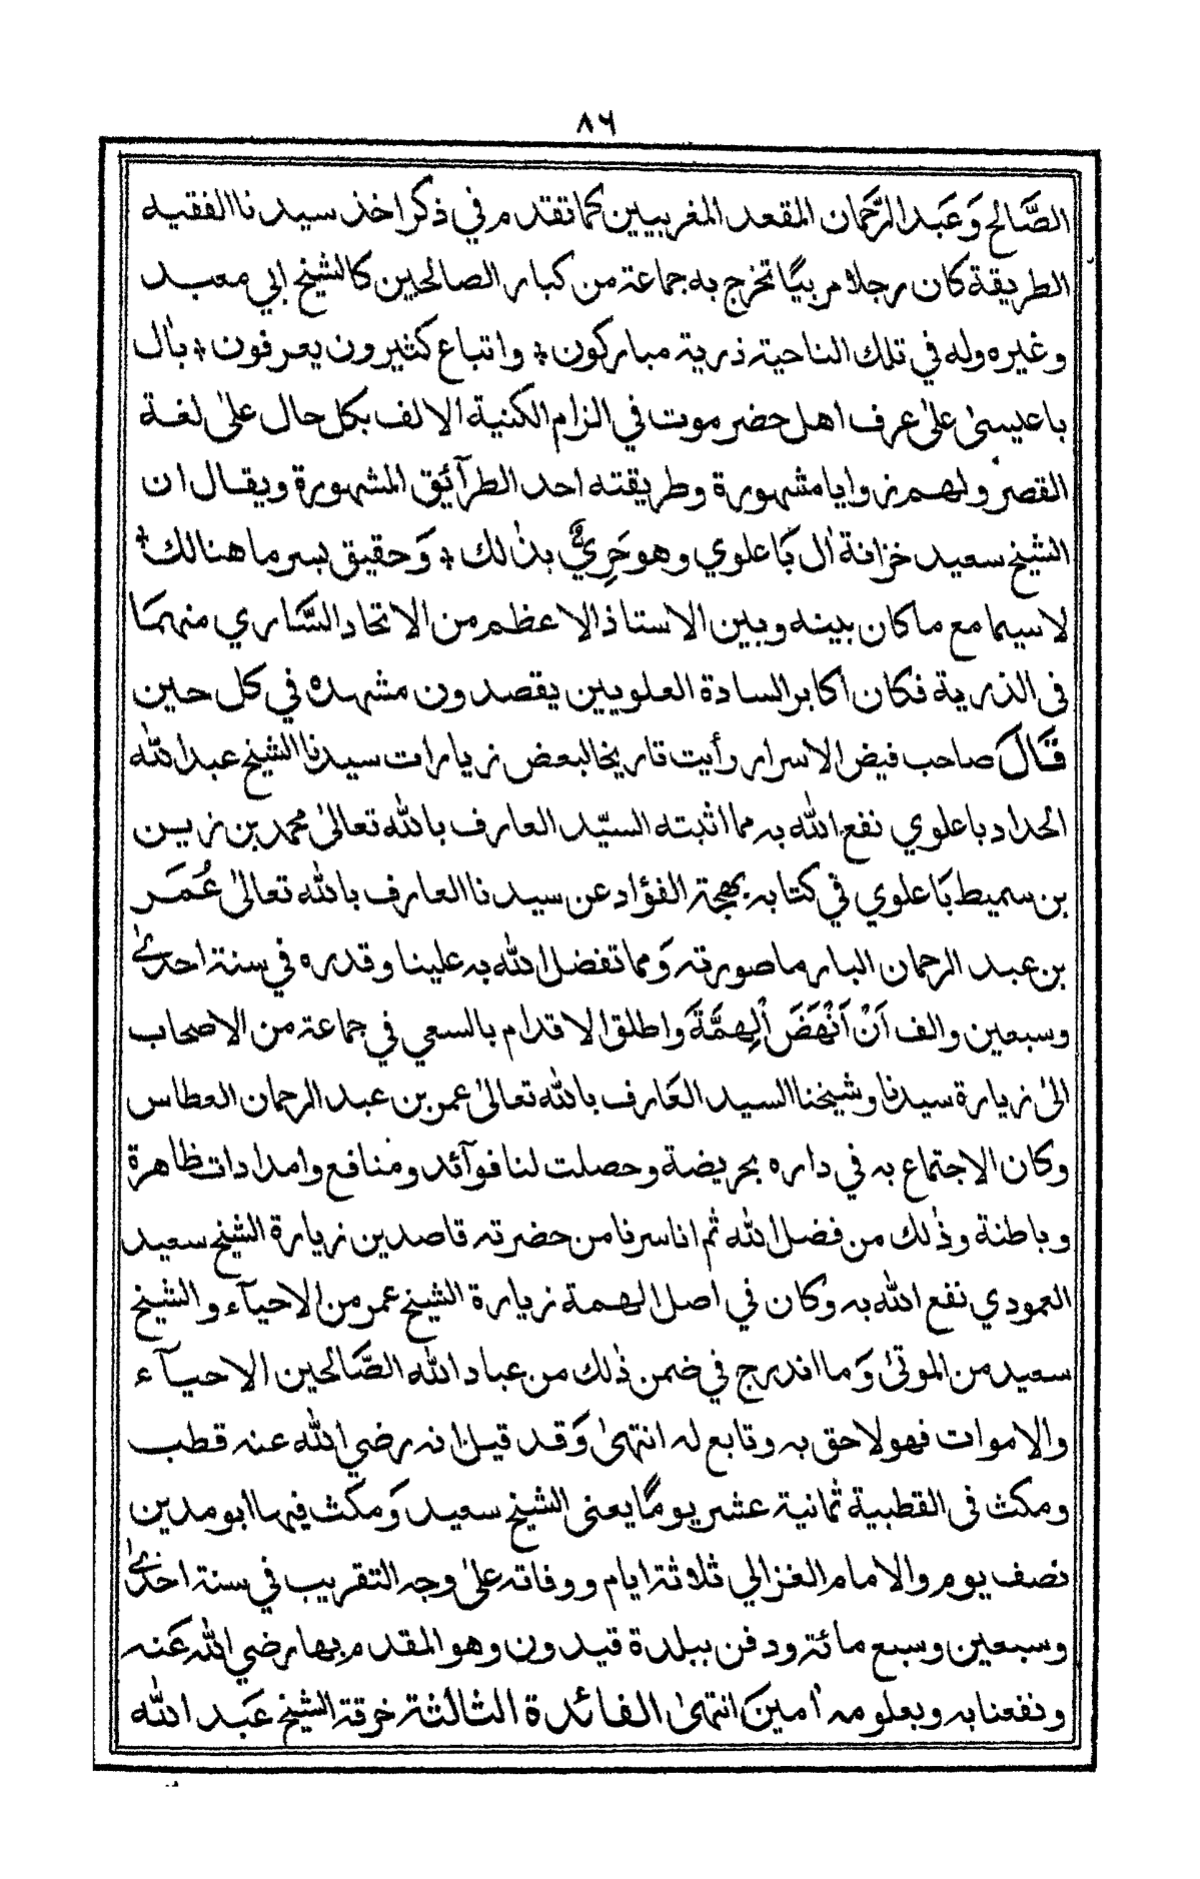 ٨٦
الصَّالح وَعَبد الرَّحمان المقعد المغربيين كما تقدم في ذكر اخذ سيدنا الفقيه
الطريقة كان رجلا مربيًا تخرج به جماعة من كبار الصالحين كالشيخ ابي معبد
وغيره وله في تلك الناحية ذرية مباركون * واتباع كثيرون يعرفون * بآل
با عيسىٰ علىٰ عرف اهل حضرموت في الزام الكنية الالف بكل حال علىٰ لغة
القصر ولهم زوايا مشهورة وطريقته احد الطرآئق المشهورة ويقال ان
الشيخ سعيد خزانة اٰل بَاعلوي وهو حَرِيٌّ بذٰلك * وَحقيق بسر ما هنالك *
لاسيما مع ما كان بينه وبين الاستاذ الاعظم من الاتحاد السَّاري منهمَا
فى الذرية فكان اكابر السادة العلويين يقصدون مشهده في كل حين
قَالَ صاحب فيض الاسرار رأيت تاريخا لبعض زيارات سيدنا الشيخ عبد الله
الحداد باعلوي نفع الله به مما اثبته السيّد العارف بالله تعالىٰ محمد بن زين
بن سميط بَاعلوي في كتابه بهجة الفؤاد عن سيدنا العارف بالله تعالىٰ عُمَر
بن عبد الرحمان البار ما صورته وَمما تفضل الله به علينا وقدره في سنة احدىٰ
وسبعين والف اَنْ اَنْهَضَ اْلِهمَّةَ واطلق الاقدام بالسعي في جماعة من الاصحاب
الىٰ زيارة سيدنا وشيخنا السيد العَارف بالله تعالىٰ عمر بن عبد الرحمان العطاس
وكان الاجتماع به في داره بحريضة وحصلت لنا فوآئد ومنافع وامدادات ظاهرة
وباطنة وذٰلك من فضل الله ثم انا سرنا من حضرته قاصدين زيارة الشيخ سعيد
العمودي نفع الله به وكان في اصل الهمة زيارة الشيخ عمر من الاحيآء والشيخ
سعيد من الموتىٰ وَما اندرج في ضمن ذٰلك من عباد الله الصَّالحين الاحيآء
والاموات فهو لاحق به وتابع له انتهىٰ وَقد قيل انه رضي الله عنه قطب
ومكث فى القطبية ثمانية عشر يومًا يعنى الشيخ سعيد وَمكث فيها ابو مدين
نصف يوم والامام الغزالي ثلاثة ايام ووفاته علىٰ وجه التقريب في سنة احدىٰ
وسبعين وسبع مائة ودفن ببلدة قيدون وهو المقدم بها رضي الله عَنه
ونفعنا به وبعلومه اٰمينَ انتهىٰ الفائدة الثالثة خرقة الشيخ عَبد الله